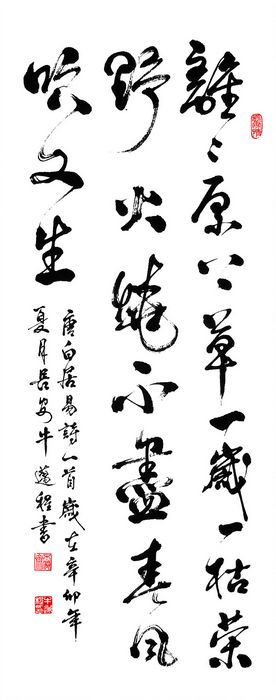 離々原上草一歲一枯榮
野火燒不盡春風
吹又生
唐白居易詩一首歲在辛卯年
夏月長安牛蓬程書